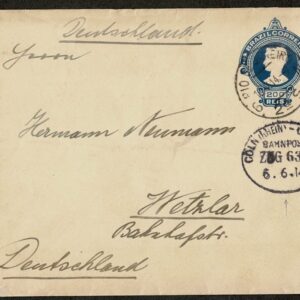 Deutschland.
BRAZIL CORREIO
Herrn
200
REIS
RIO
Hermann Neumann
CÖLN (RHEIN)
BAHNPOST
ZUG 63
6.6.14
Wetzlar
Bahnhofstr.
Deutschland